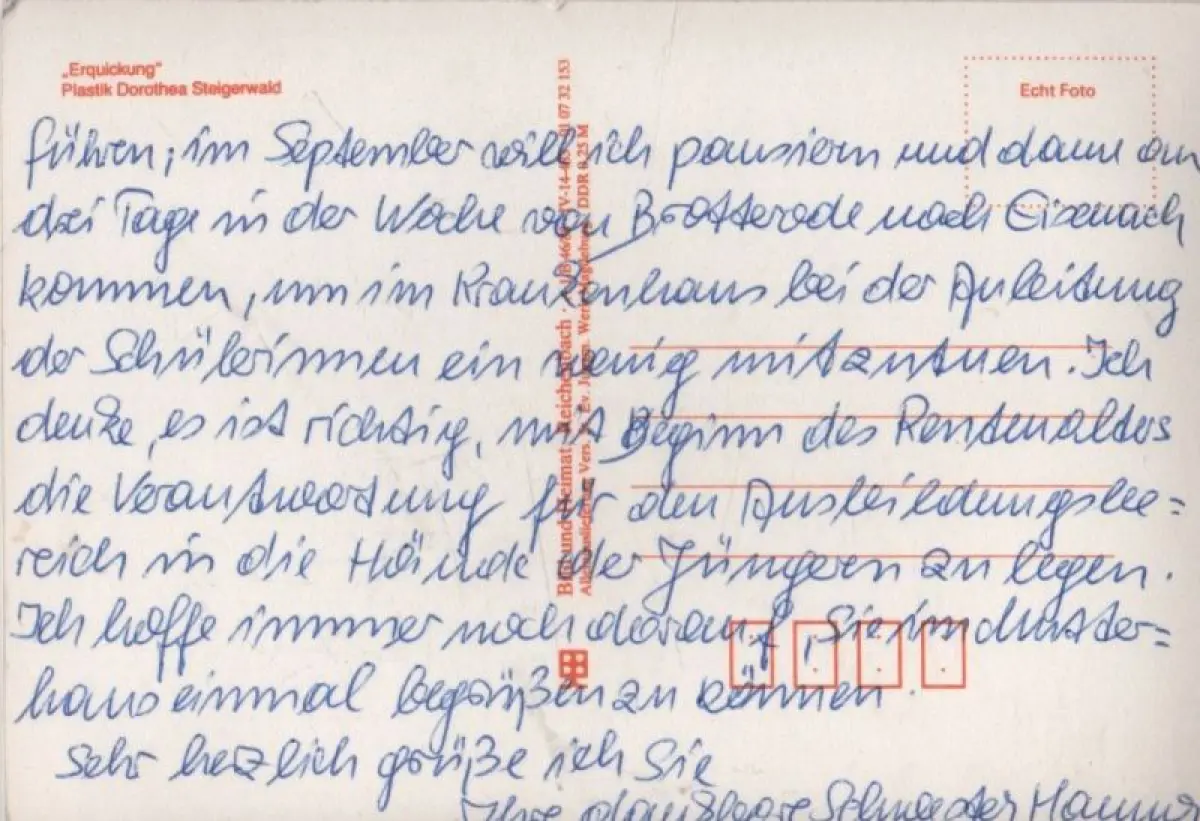 „Erquickung"
Plastik Dorothea Steigerwald
Echt Foto
führen; im September will ich pausieren und dann an
drei Tage in der Woche von Brotterode nach Eisenach
kommen, um im Krankenhaus bei der Anleitung
der Schülerinnen ein wenig mitzutun. Ich
denke, es ist richtig, mit Beginn des Rentenalters
die Verantwortung für den Ausbildungsbe=
reich in die Hände der Jüngern zu legen.
Ich hoffe immer noch darauf, Sie im Mutter=
haus einmal begrüßen zu können.
Sehr herzlich grüße ich Sie
Ihre dankbare Schwester Hanna
Bild und Heimat Reichenbach
DDR 0,25 M